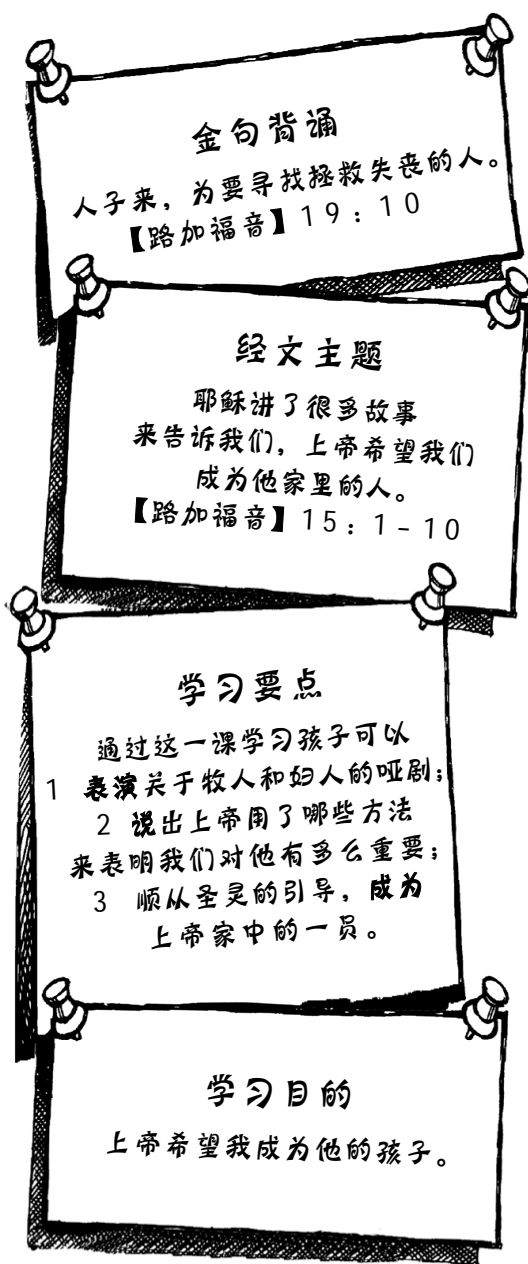 金句背诵
人子来，为要寻找拯救失丧的人。
【路加福音】19：10
经文主题
耶稣讲了很多故事
来告诉我们，上帝希望我们
成为他家里的人。
【路加福音】15：1-10
学习要点
通过这一课学习孩子可以
1 表演关于牧人和妇人的哑剧；
2 说出上帝用了哪些方法
来表明我们对他有多么重要；
3 顺从圣灵的引导，成为
上帝家中的一员。
学习目的
上帝希望我成为他的孩子。